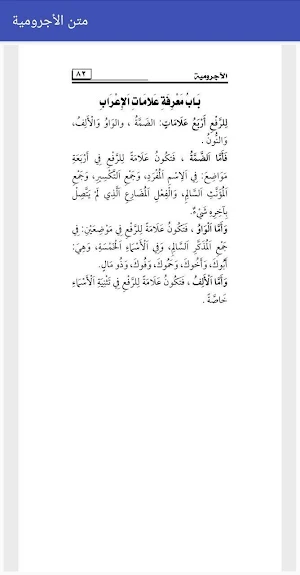 متن الأجرومية
الآجرومية ٨٢
بَابُ مَعْرِفَةِ عَلَامَاتِ الإِعْرَابِ
لِلرَّفْعِ أَرْبَعُ عَلَامَاتٍ: الضَّمَّةُ ، والوَاوُ وَالْأَلِفُ،
وَالنُّونُ .
فَأَمَّا الضَّمَّةُ ، فَتَكُونُ عَلَامَةً لِلرَّفْعِ فِي أَرْبَعَةِ
مَوَاضِعَ: فِي الِاسْمِ الْمُفْرَدِ، وَجَمْعِ التَّكْسِيرِ، وَجَمْعِ
الْمُؤَنَّثِ السَّالِمِ، وَالْفِعْلِ الْمُضَارِعِ الَّذِي لَمْ يَتَّصِلْ
بِآخِرِهِ شَيْءٌ.
وَأَمَّا الْوَاوُ ، فَتَكُونُ عَلَامَةً لِلرَّفْعِ فِي مَوْضِعَيْنِ: فِي
جَمْعِ الْمُذَكَّرِ السَّالِمِ، وَفِي الْأَسْمَاءِ الْخَمْسَةِ، وَهِيَ:
أَبُوكَ، وَأَخُوكَ، وَحَمُوكَ، وَفُوكَ، وَذُو مَالٍ.
وَأَمَّا الْأَلِفُ ، فَتَكُونُ عَلَامَةً لِلرَّفْعِ فِي تَثْنِيَةِ الْأَسْمَاءِ
خَاصَّةً .